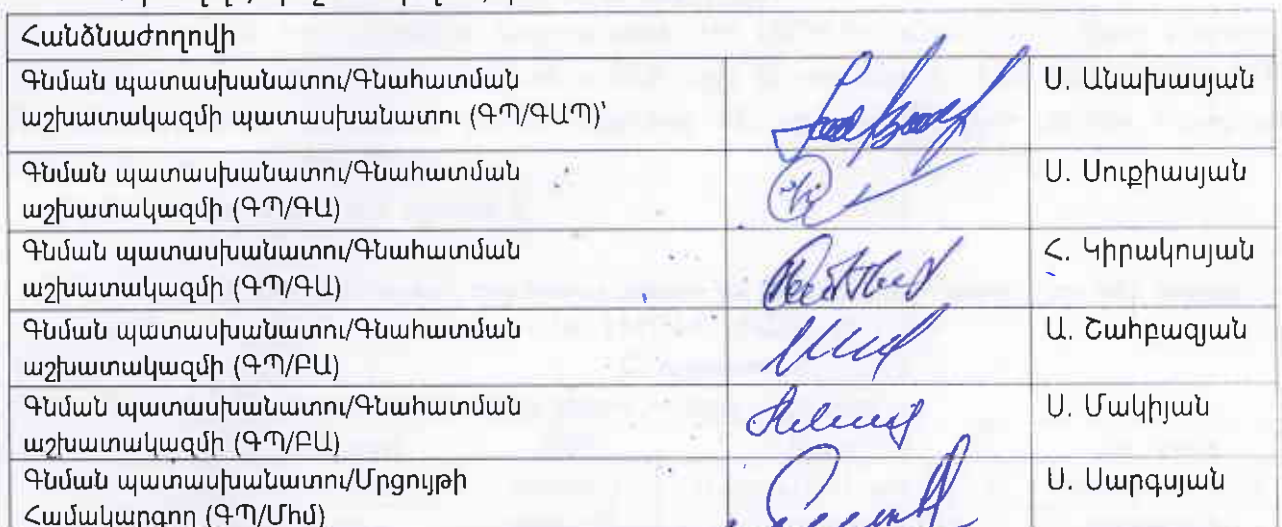 Հանձնաժողովի
Գնման պատասխանատու/Գնահատման
աշխատակազմի պատասխանատու (ԳՊ/ԳԱՊ)՝
Ս. Անախասյան
Գնման պատասխանատու/Գնահատման
աշխատակազմի (ԳՊ/ԳԱ)
Ս. Սուքիասյան
Գնման պատասխանատու/Գնահատման
աշխատակազմի (ԳՊ/ԳԱ)
Հ. Կիրակոսյան
Գնման պատասխանատու/Գնահատման
աշխատակազմի (ԳՊ/ԲԱ)
Ա. Շահբազյան
Գնման պատասխանատու/Գնահատման
աշխատակազմի (ԳՊ/ԲԱ)
Ս. Մակիյան
Գնման պատասխանատու/Մրցույթի
Համակարգող (ԳՊ/Մհմ)
Ս. Սարգսյան